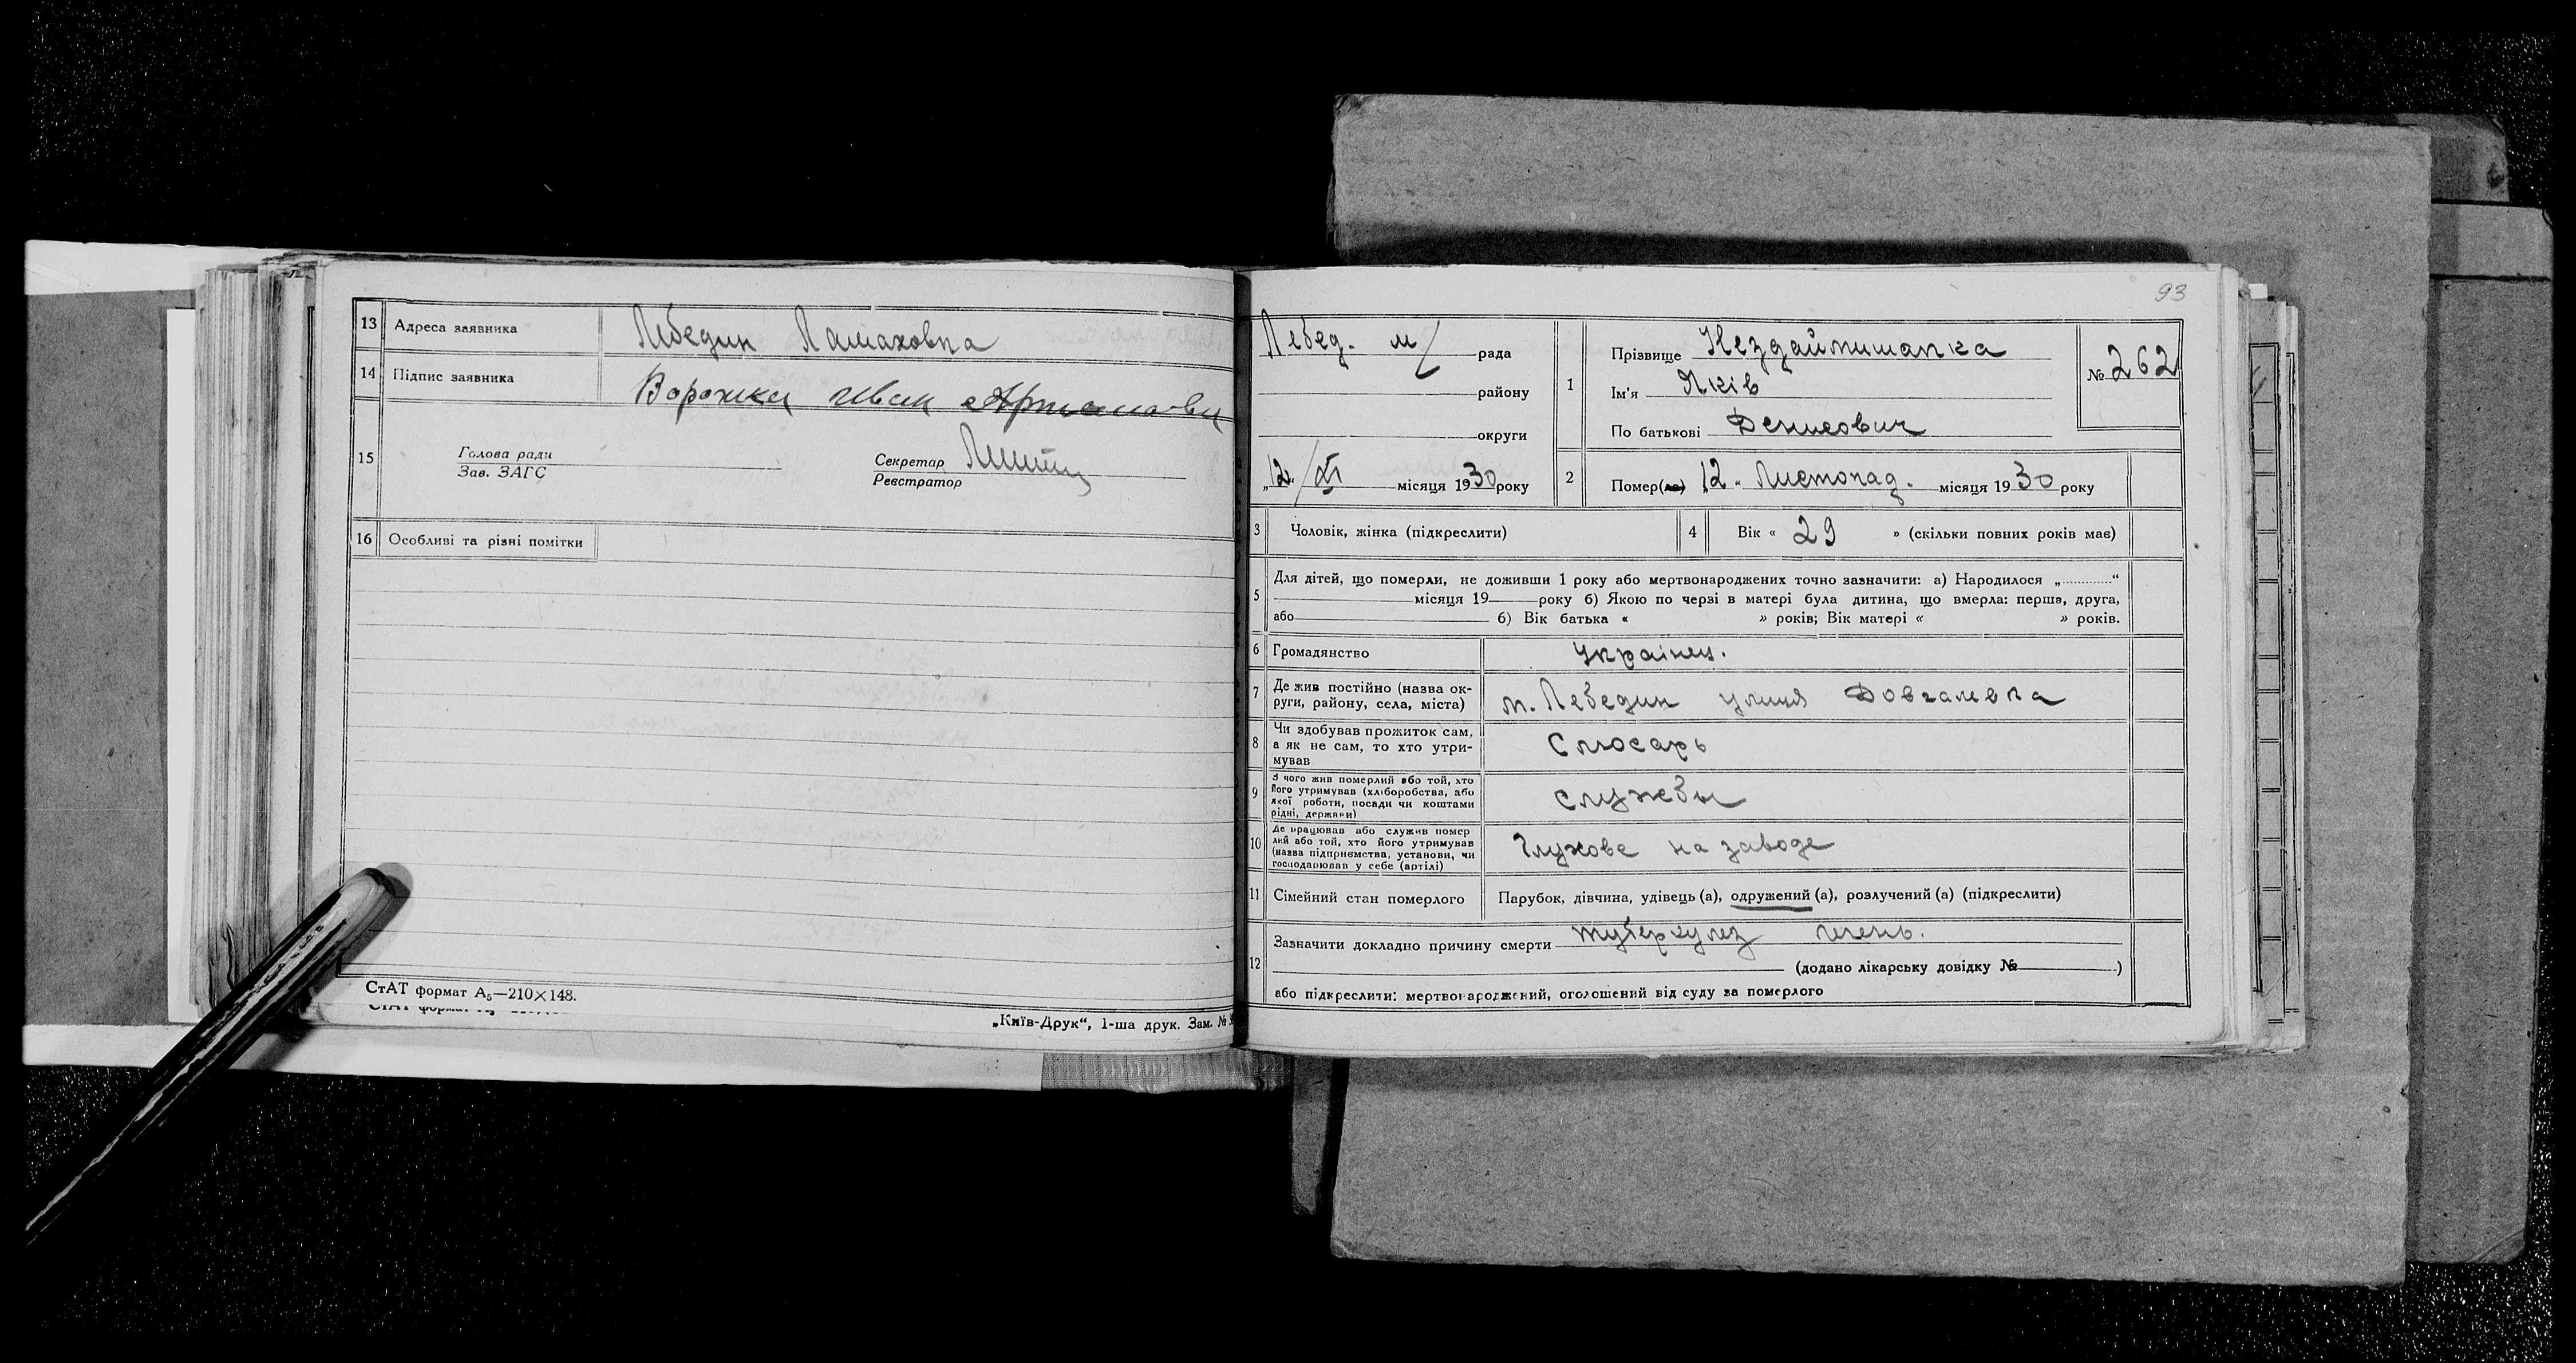 13 Адреса заявника Лебедин Ламаховка
14 Підпис заявника Ворожка Иван
15
Голова ради
Зав. ЗАГС
Секретар
Реєстратор
16 Особливі та різні помітки
СтАТ формат А₅—210×148.
„Київ-Друк“, 1-ша друк. Зам. №
93
Лебед. м/ рада
району
округи
„12“/XI місяця 1930 року
1 Прізвище Нездайминшапка
Ім'я Яків
По батькові Денисович
№ 262
2 Помер(ла) „12“ Листопад. місяця 1930 року
3 Чоловік, жінка (підкреслити)
4 Вік « 29 » (скільки повних років має)
5 Для дітей, що померли, не доживши 1 року або мертвонароджених точно зазначити: а) Народилося „............“
місяця 19 року б) Якою по черзі в матері була дитина, що вмерла: перша, друга,
або б) Вік батька « » років; Вік матері « » років.
6 Громадянство Украінец.
7 Де жив постійно (назва ок-
руги, району, села, міста) м. Лебедин улиця Довгалевка
8 Чи здобував прожиток сам,
а як не сам, то хто утри-
мував Слюсарь
9 З чого жив померлий або той, хто
його утримував (хліборобства, або
якої роботи, посади чи коштами
рідні, держави) службы
10 Де працював або служив помер
лий або той, хто його утримував
(назва підприємства, установи, чи
господарював у себе (артілі) Глухове на заводе
11 Сімейний стан померлого Парубок, дівчина, удівець (а), одружений (а), розлучений (а) (підкреслити)
12 Зазначити докладно причину смерти туберкулез
(додано лікарську довідку № )
або підкреслити: мертвонароджений, оголошений від суду за померлого